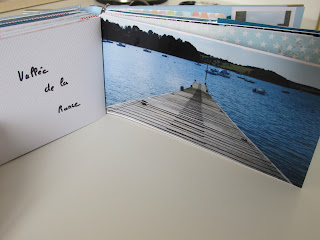 Vallée
de la
Rance